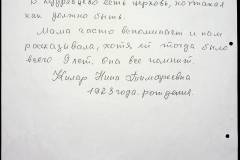 есть церковь, но такая
как должно быть.
Мама часто вспоминает и нам
рассказывала, хотя ей тогда было
всего 9 лет. она все помнит.
Жилар Нина Тимофеевна
1923 года рождения.